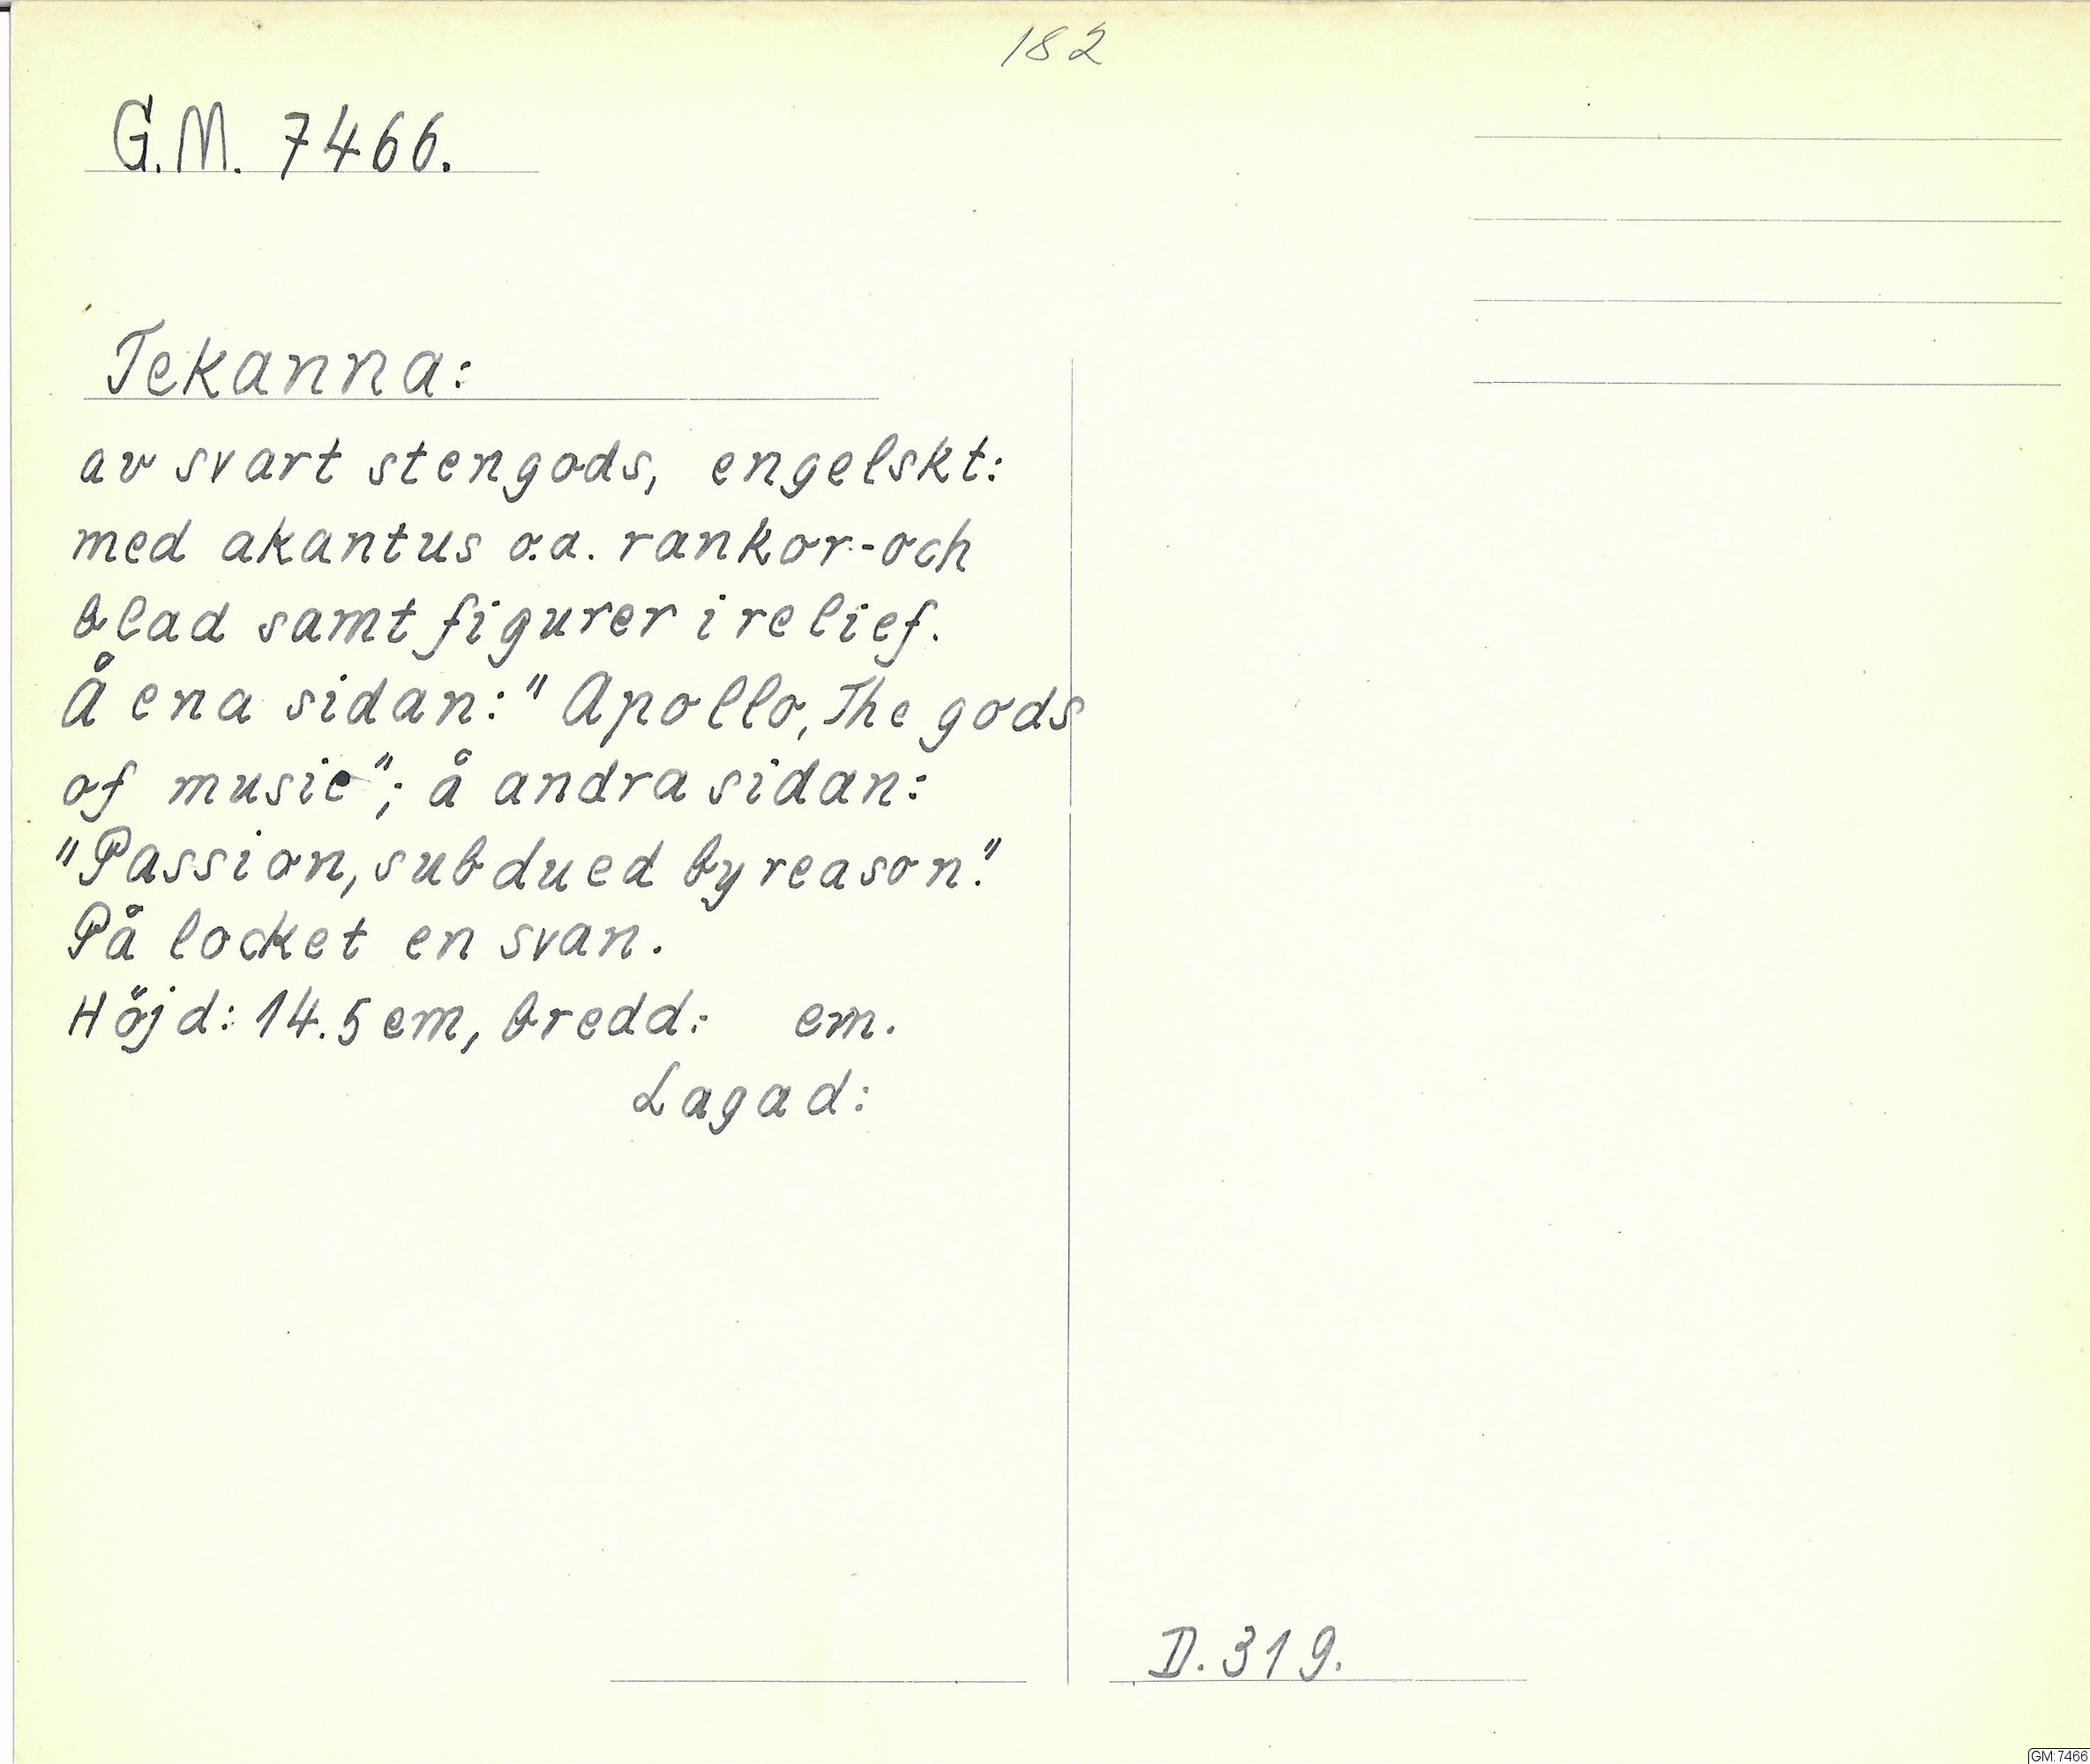 182
G.M. 7466.
Tekanna:
av svart stengods, engelskt:
med akantus o.a. rankor-och
blad samt figurer i relief.
Å ena sidan: "Apollo, The gods
of music"; å andra sidan:
"Passion, subdued by reason."
På locket en svan.
Höjd: 14.5 cm, bredd: cm.
Lagad:
D. 319.
GM:7466